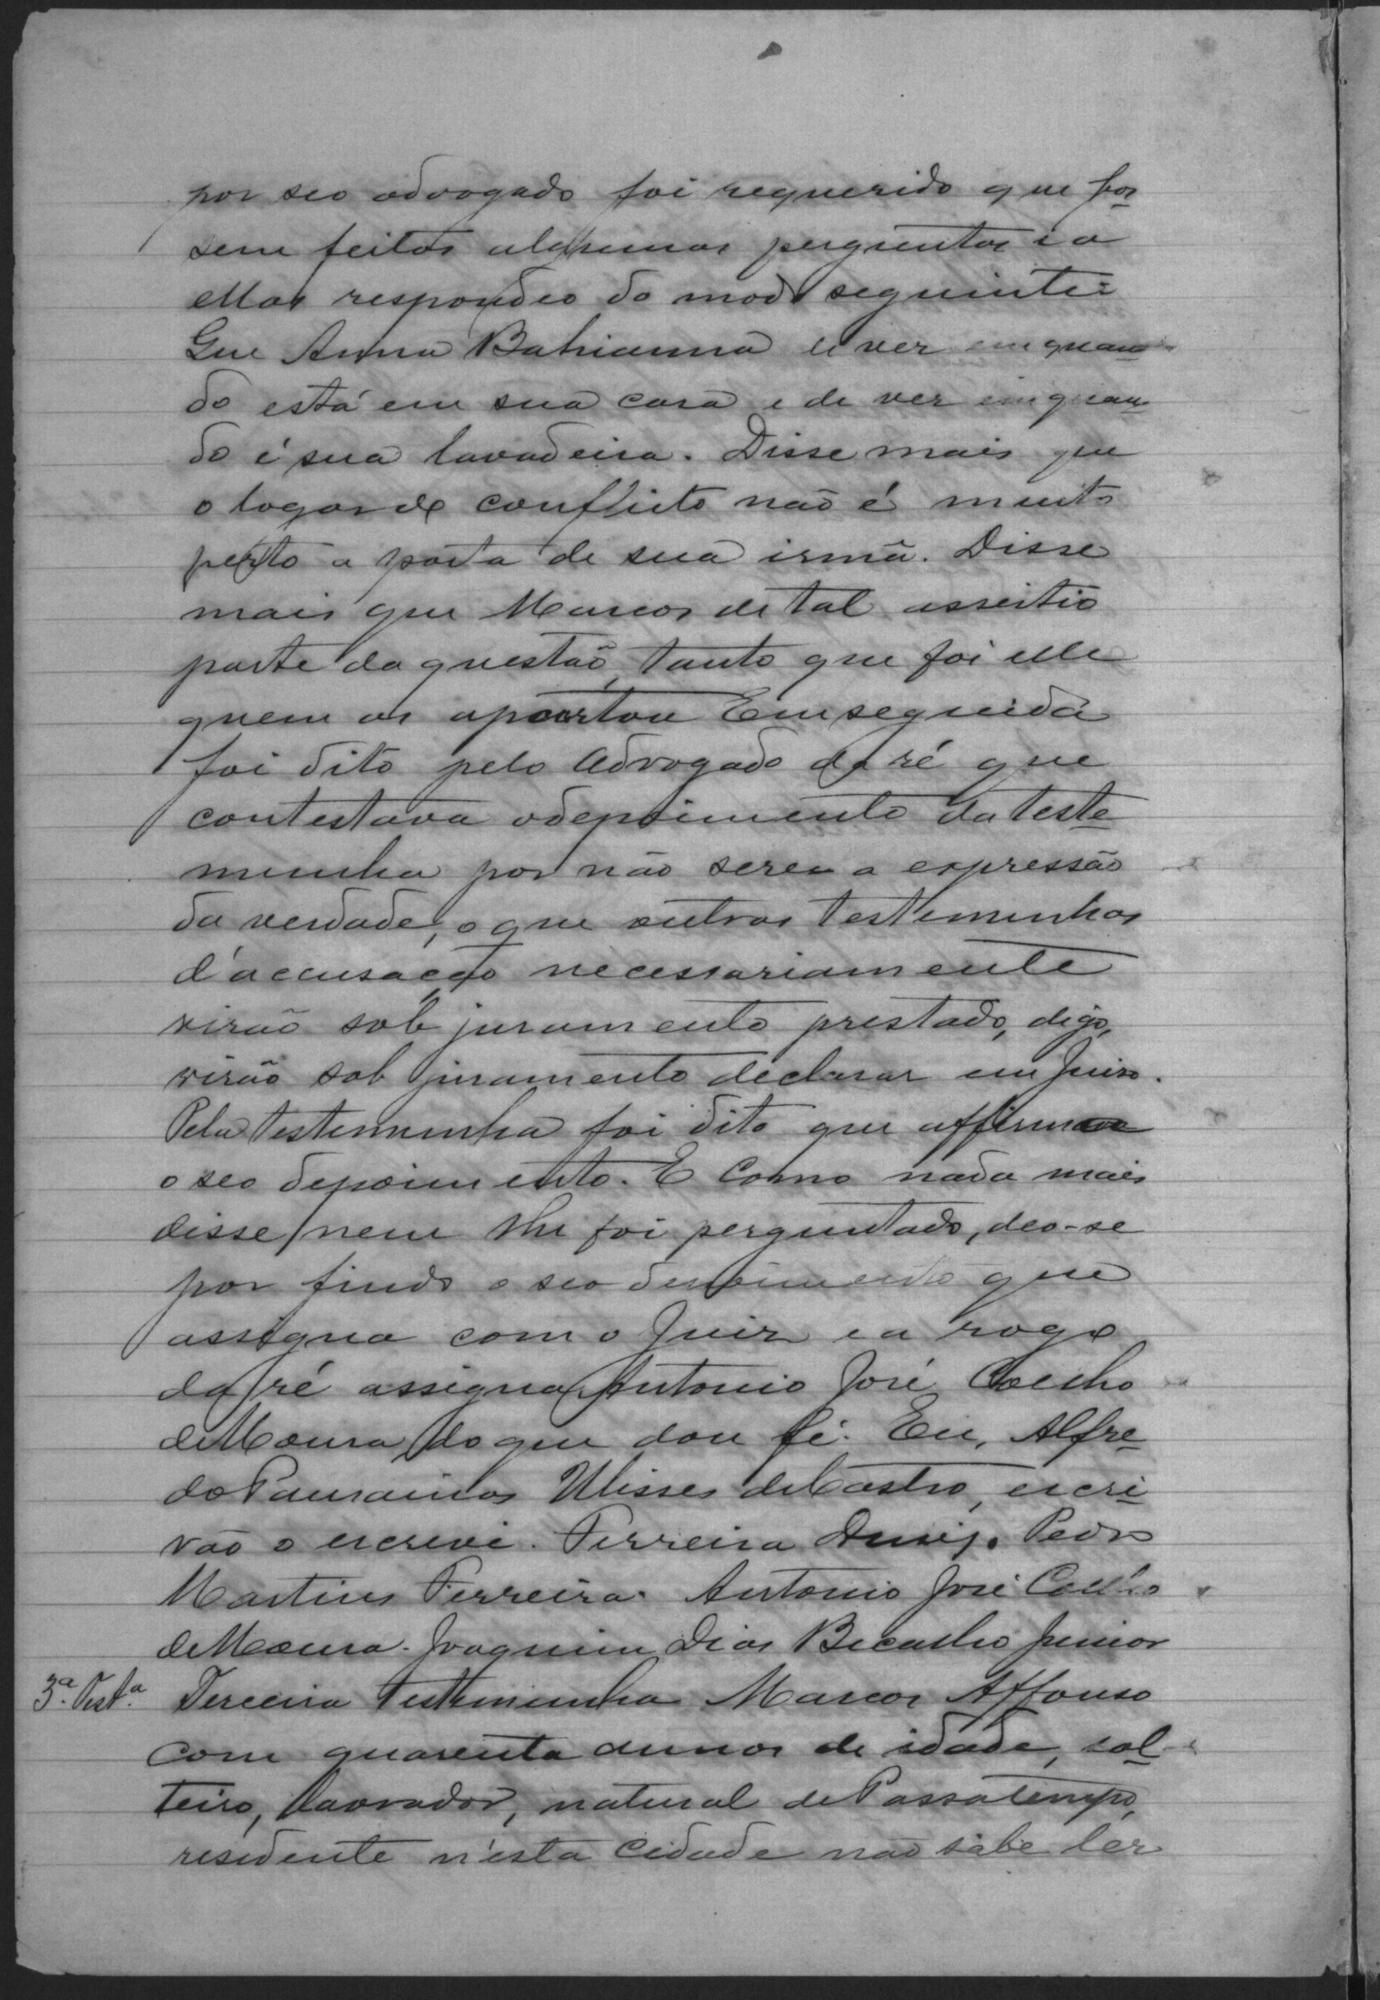 por seo advogado foi requerido que fos
sem feitas algumas perguntas e a
ellas respondeo do modo seguinte:
Que Anna Bahianna de ver em quan
do está em sua casa e de ver em quan
do é sua lavadeira. Disse mais que
o logar do conflicto não é muito
perto a porta de sua irmã. Disse
mais que Marcos de tal assistio
parte da questão, tanto que foi elle
quem os apartou Em seguida
foi dito pelo Advogado da ré que
contestava o depoimento da teste
munha por não serem a expressão
da verdade, o que outras testemunhas
d'accusação necessariamente
virão sob juramento prestado, digo,
virão sob juramento declarar em Juiso.
Pela testemunha foi dito que affirmava
o seo depoimento. E como nada mais
disse nem lhe foi perguntado, deo-se
por findo o seo depoimento que
assigna com o Juiz e a rogo
da ré assigna Antonio José Coelho
de Moura do que dou fé. Eu, Alfre
do Ulisses de Castro, escri
vão o escrevi. Ferreira Pedro
Martins Ferreira. Antonio José Coelho
de Moura. Joaquim Dias Bicalho Junior
3ª. Testª. Terceira testemunha Marcos Affonso
com quarenta annos de idade, sol
teiro, lavrador, natural de Passatempo,
residente n'esta cidade não sabe lêr